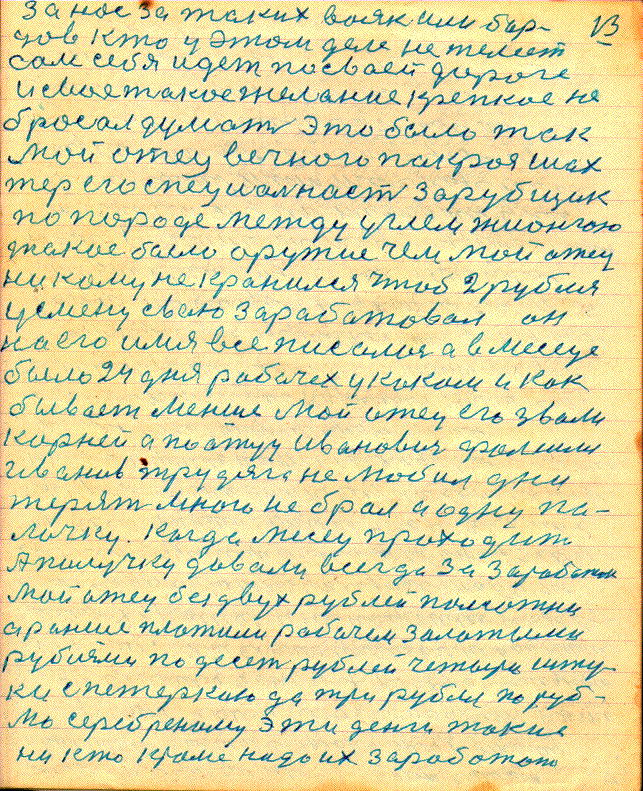 13
за нос за таких вояк или бор-
цов кто у этом деле не желает
сам себя идет посваей дороге
и свое такое желание крепкое не
бросал думат это было так
мой отец вечного покроя шах
тер его специалност зарубщик
по породе между углем
такое было оружие чем мой отец
ни кому не кранился чтоб 2 рубля
у смену сваю зарабатовал он
на его имя все писалыя а в месеце
было 24 дня рабачех у каком и как
бывает менше мой отец его звали
Карней а по атцу Иванович фамили
Иванов трудяга не любил дни
терят много не брал а одну па-
лочку. Когда месец проходит
А палучку давали всегда за заработок
мой отец без двух рублей полсотни
а ранше платили рабачем залатыми
рублями по десет рублей четыри шту-
ки с петеркою да три рубли по руб-
лю серебреному эти денги такие
ни кто кроме надо их заработат